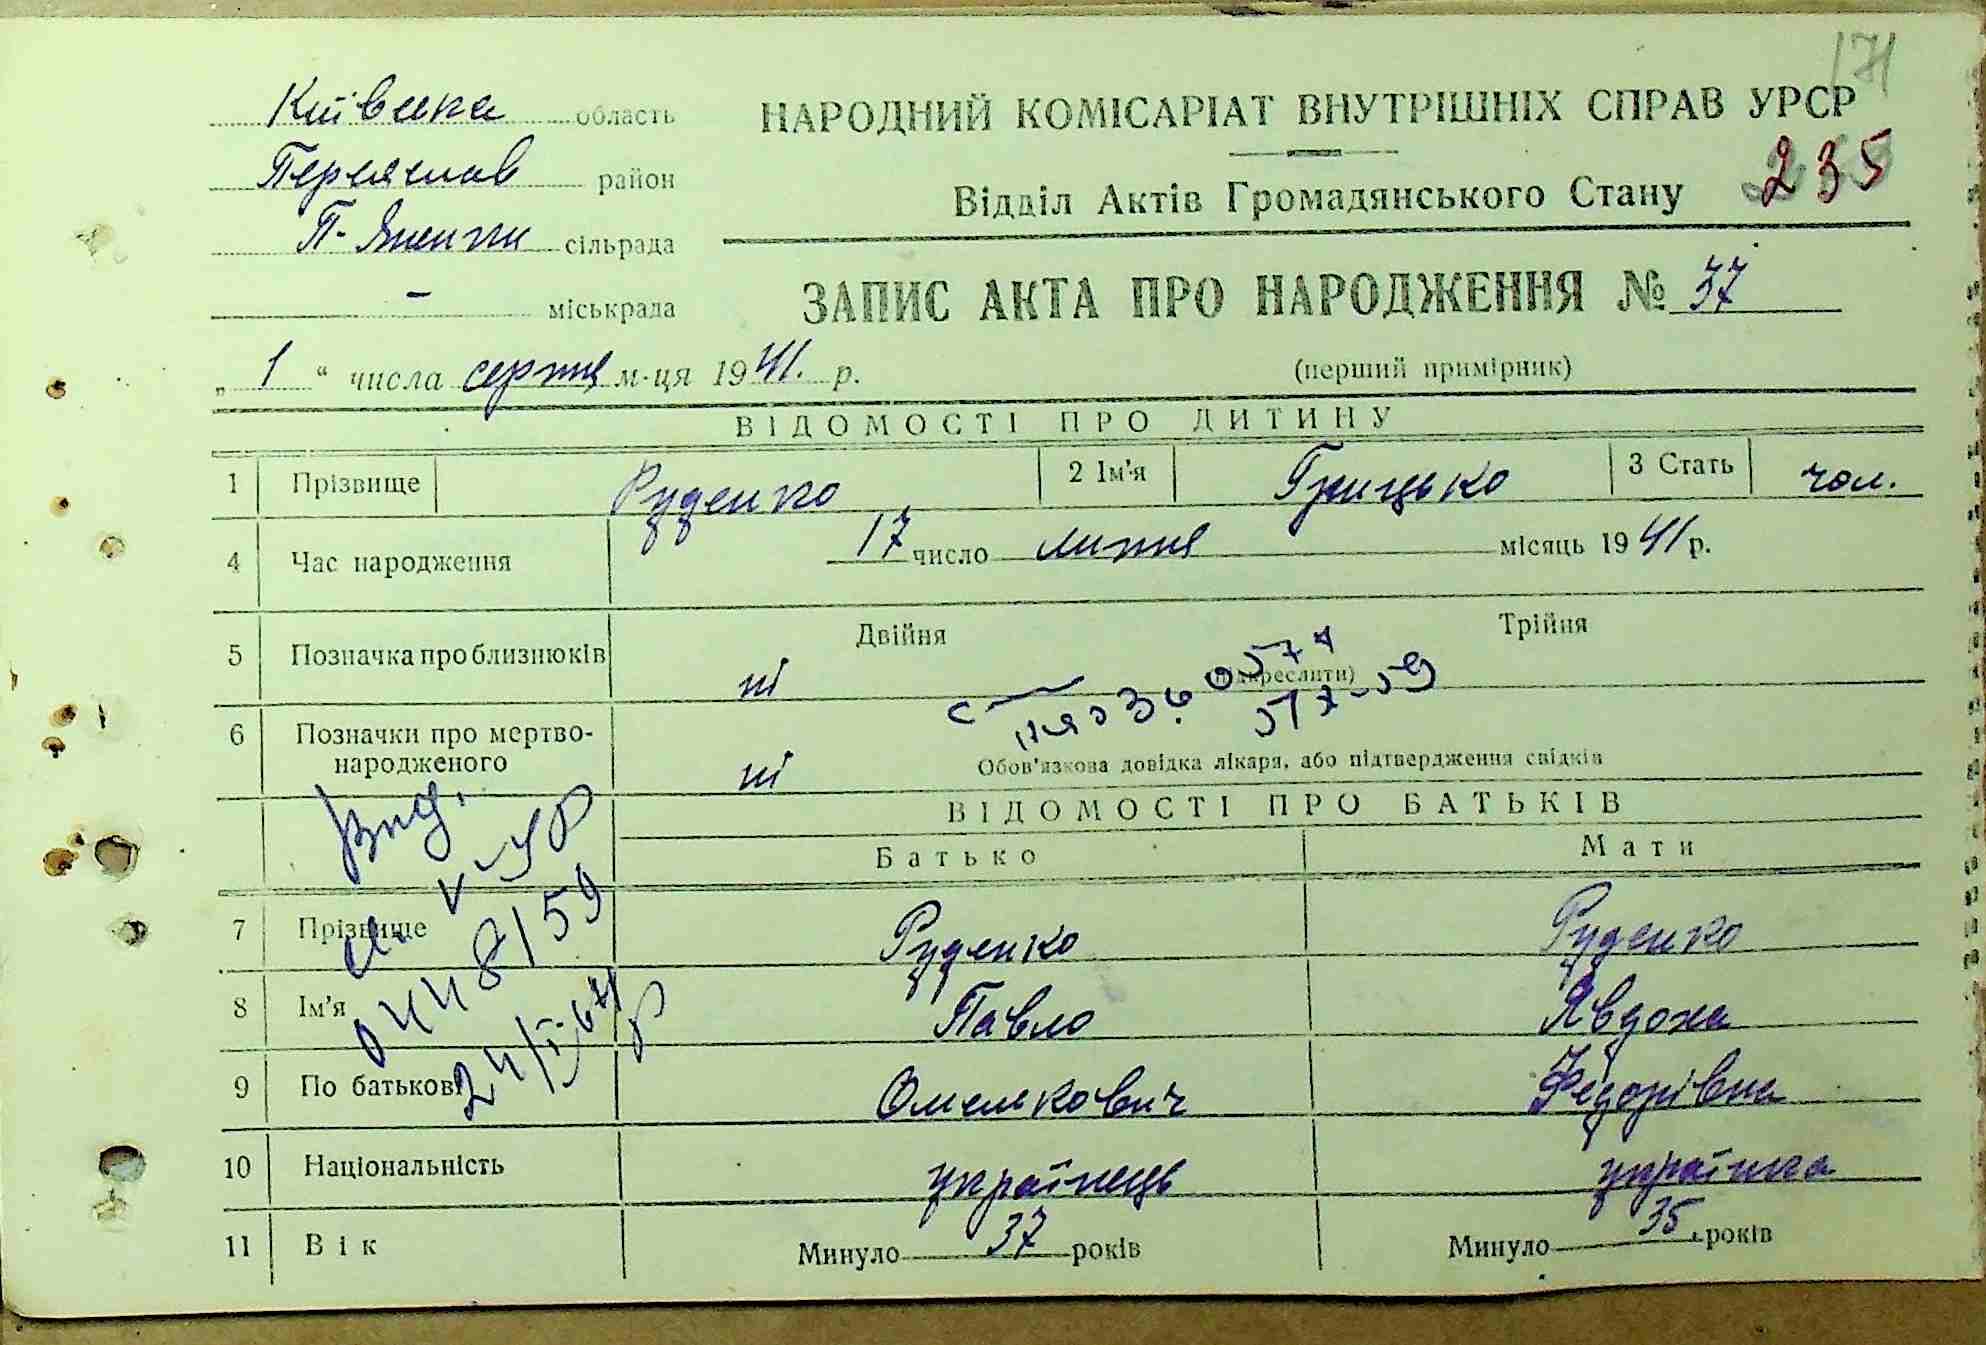 171
Київська область
НАРОДНИЙ КОМІСАРІАТ ВНУТРІШНІХ СПРАВ УРСР
Переяслав район
Відділ Актів Громадянського Стану 235
сільрада
- міськрада
ЗАПИС АКТА ПРО НАРОДЖЕННЯ № 37
„ 1 “ числа серпня м-ця 1941. р.
(перший примірник)
ВІДОМОСТІ ПРО ДИТИНУ
1 Прізвище Руденко 2 Ім'я Грицько 3 Стать чол.
4 Час народження 17 число липня місяць 1941 р.
5 Позначка про близнюків ні Двійня Трійня
(підкреслити)
6 Позначки про мертво-
народженого ні Обов'язкова довідка лікаря, або підтвердження свідків
ВІДОМОСТІ ПРО БАТЬКІВ
Батько Мати
7 Прізвище Руденко Руденко
8 Ім'я Павло Явдоха
9 По батькові Омелькович Федорівна
10 Національність українець українка
11 Вік Минуло 37 років Минуло 35 років